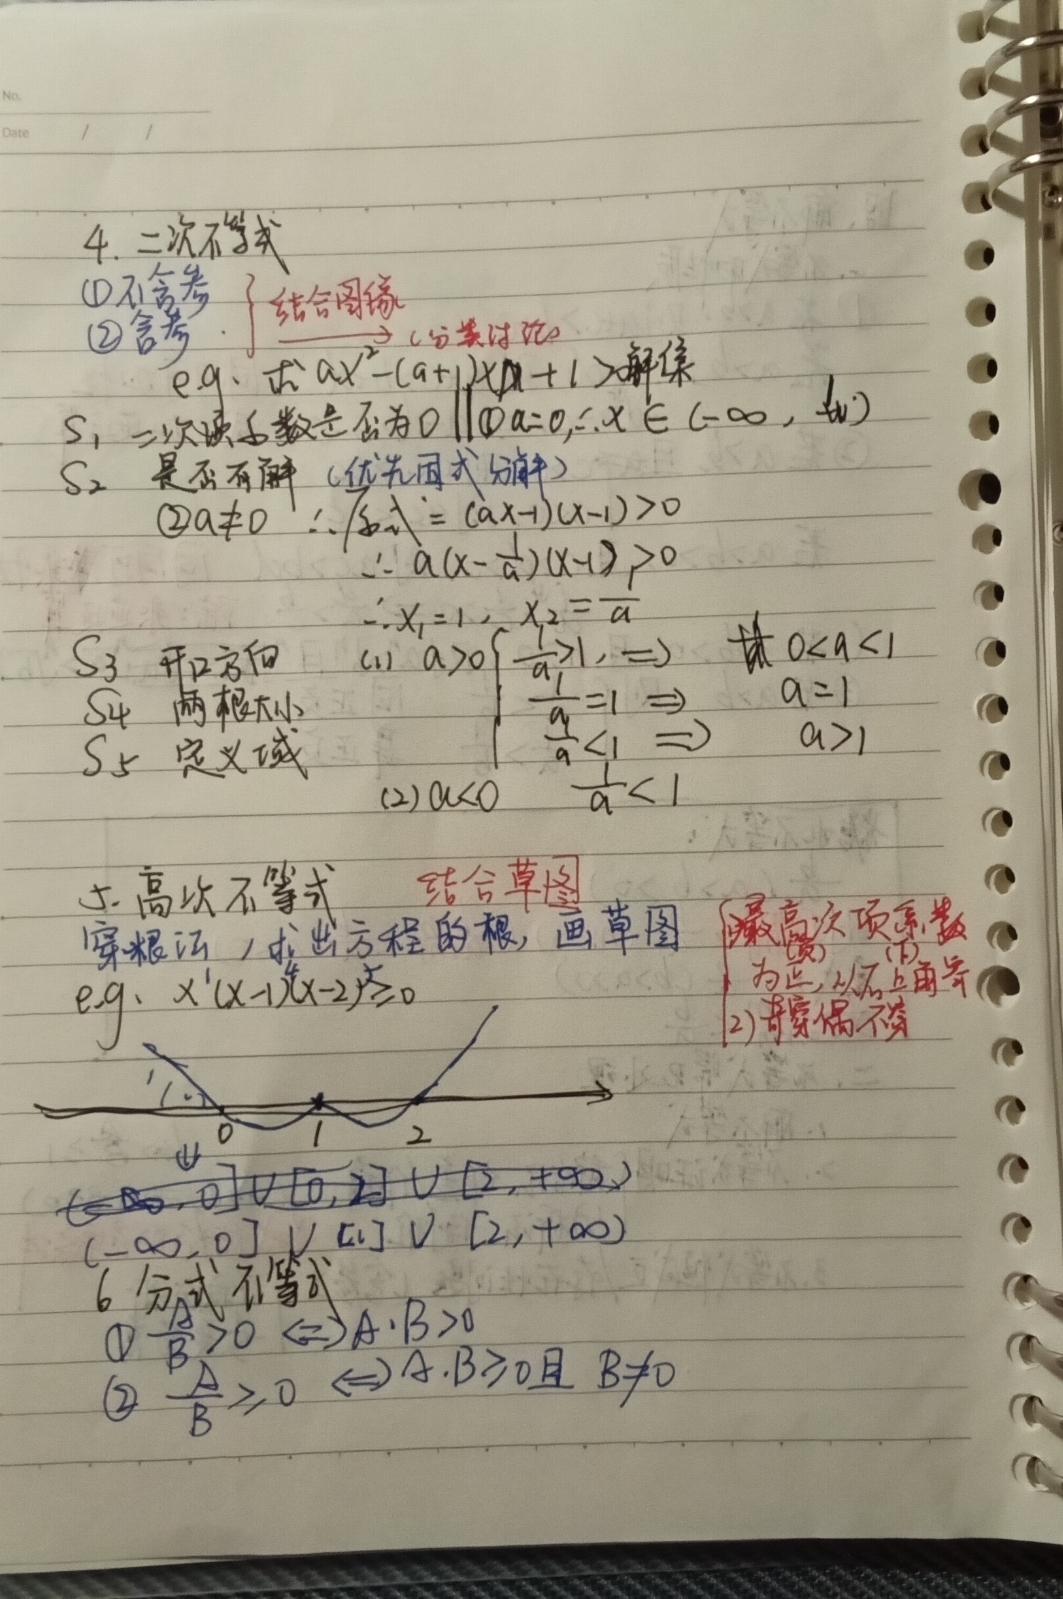 No.
Date / /
4. 二次不等式
①不含参
②含参
结合图像
(分类讨论)
e.g. 求 ax²-(a+1)x+1>解集
S₁ 二次项系数是否为0 ‖ ①a=0,∴x∈(-∞,
S₂ 是否有解 (优先因式分解)
②a≠0 ∴原式=(ax-1)(x-1)>0
∴a(x-1/a)(x-1)>0
∴x₁=1, x₂=1/a
S3 开口方向 (1) a>0 { 1/a>1, ⇒ 0<a<1
S4 两根大小 1/a=1 ⇒ a=1
S5 定义域 1/a<1 ⇒ a>1
(2) a<0 1/a<1
5. 高次不等式 结合草图
穿根法,求出方程的根,画草图
e.g. x¹(x-1)⁴(x-2)⁵≥0
1)最高次项系数
(负) (下)
为正,从右上角穿
2)奇穿偶不穿
0 1 2
(-∞,0]∪[0,2]∪[2,+∞)
(-∞,0]∪[1]∪[2,+∞)
6 分式不等式
① A/B>0 ⇔ A·B>0
② A/B≥0 ⇔ A·B≥0且 B≠0